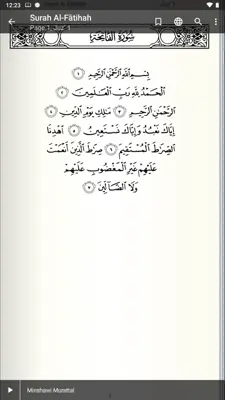 12:23
Surah Al-Fātihah
Page 1, Juz' 1
سورة الفاتحة
بِسْمِ اللَّهِ الرَّحْمَٰنِ الرَّحِيمِ ١
الْحَمْدُ لِلَّهِ رَبِّ الْعَالَمِينَ ٢
الرَّحْمَٰنِ الرَّحِيمِ ٣ مَالِكِ يَوْمِ الدِّينِ ٤
إِيَّاكَ نَعْبُدُ وَإِيَّاكَ نَسْتَعِينُ ٥ اهْدِنَا
الصِّرَاطَ الْمُسْتَقِيمَ ٦ صِرَاطَ الَّذِينَ أَنْعَمْتَ
عَلَيْهِمْ غَيْرِ الْمَغْضُوبِ عَلَيْهِمْ
وَلَا الضَّالِّينَ ٧
Minshawi Murattal